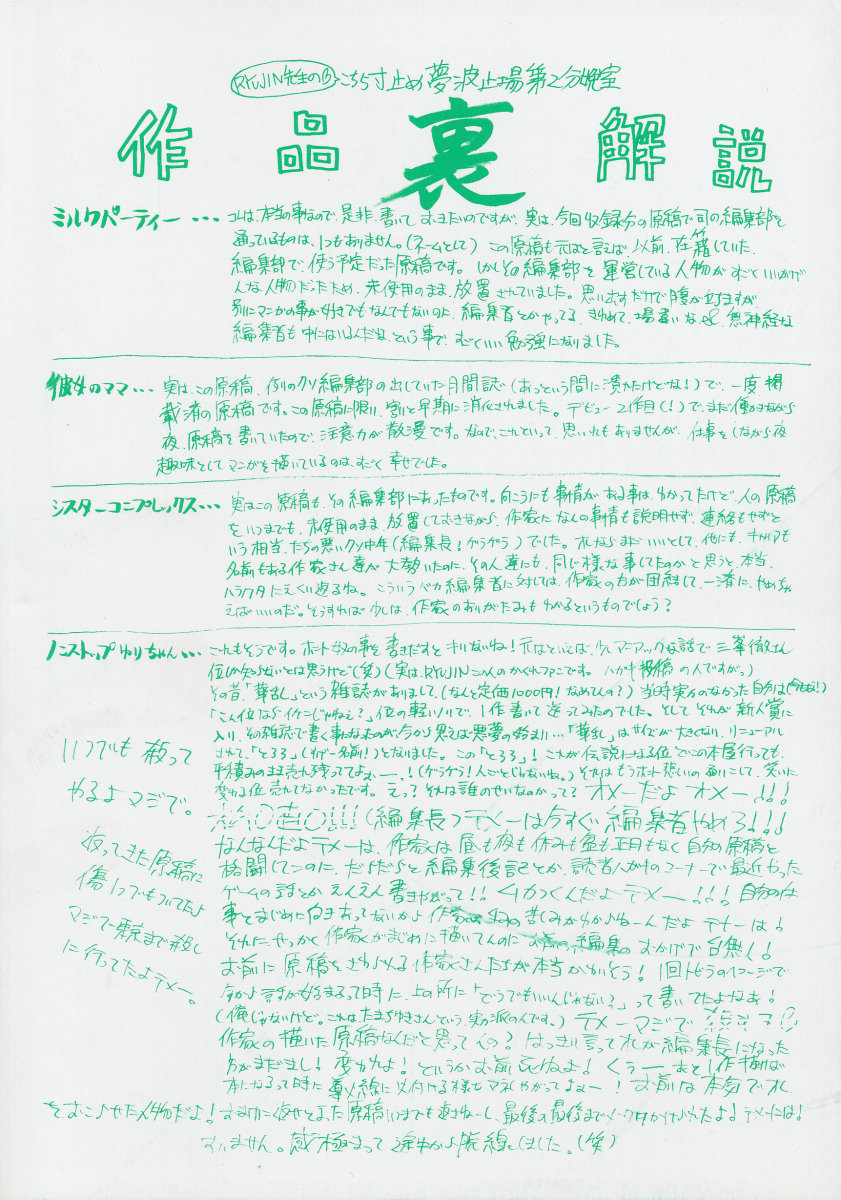 RYUJIN先生の こちら寸止め夢波止場第2分娩室
作品裏解説
ミルクパーティー・・・ コレは、本当の事なので、是非、書いておきたいのですが、実は、今回収録分の原稿で司の編集部を
通っているものは、1つもありません。(ネームとして) この原稿も元はと言えば、以前、在籍していた
編集部で、使う予定だった原稿です。しかしその編集部を運営している人物がすごくいいかげ
んな人物だったため、未使用のまま、放置されていました。思い出すだけで腹が立ちますが
別にマンガの事が好きでもなんでもないのに、編集者とかやってる、きわめて、場違いな 無神経な
編集者も中にはいるんだな、という事で、すごくいい勉強になりました。
彼女のママ・・・ 実は、この原稿、例のクソ編集部の出していた月間誌(あっという間に潰れたけどな!)で、一度掲
載済の原稿です。この原稿に限り、割と早期に消化されました。デビュー2作目(!)で、まだ働きながら
夜、原稿を書いていたので、注意力が散漫です。なので、これといって、思い入れもありませんが、仕事をしながら夜
趣味としてマンガを描いているのは、すごく幸せでした。
シスターコンプレックス・・・ 実はこの原稿も、その編集部にあったものです。向こうにも事情がある事は、わかってたけど、人の原稿
をいつまでも、未使用のまま、放置しておきながら、作家になんの事情も説明せず、連絡もせずと
いう相当、たちの悪いクソ中年(編集長!ゲラゲラ)でした。オレならまだいいとして、他にも、キャリアも
名前もある作家さん達が大勢いたのに、その人達にも、同じ様な事してたのかと思うと、本当、
ハラワタにえくり返るね。こういうバカ編集者に対しては、作家の方が団結して、一斉に、やめちゃ
えばいいのだ。そうすれば少しは、作家のありがたみもわかるというものでしょう?
ノンストップゆりちゃん・・・ これもそうです。ホント奴の事を書きだすとキリないね!元はといえば、少しマニアックな話で三峯徹さん
位しか知らないとは思うけど(笑)(実は、RYUJINこの人のかくれファンです。ハガキ投稿の人ですが。)
その昔「華乱」という雑誌がありまして、(なんと定価1000円!なめてんの?)当時実力のなかった自分は(今もだ!)
「こん位ならイケんじゃねぇ?」位の軽いノリで、1作書いて送ってみたのでした。そしてそれが新人賞に
入り、その雑誌で書く事になったのが今から思えば悪夢の始まり・・・「華乱」はサイズが大きくなり、リニューアル
されて、「とろろ」(すげー名前!)となりました。この「とろろ」!これが伝説になる位どこの本屋行っても、
平積みのまま売れ残っててよぉー、!(ゲラゲラ!人ごとじゃないね。)それはもうホント悲しいの通りこして、笑いに
変わる位売れてなかったです。えっ?それは誰のせいなのかって?オメーだよオメー!!!
(編集長)テメーは今すぐ編集者やめろ!!!
なんなんだよテメーは、作家は昼も夜も休みも盆も正月もなく自分の原稿と
格闘してンのに、だらだらと編集後記とか、読者ハガキのコーナーで最近やった
ゲームの話とかえんえん書きやがって!!ムカつくんだよテメー!!!自分の仕
事とまじめに向きあってないから作家 の苦しみがわからねーんだよテメーは!
それに、せっかく作家がまじめに描いてんのにお前の編集のおかげで台無し!
お前に原稿をさわられる作家さんたちが本当かわいそう!1回トビラのページで
今から話が始まるって時に、上の所に「どうでもいいんじゃない?」って書いてたよなあ!
(俺じゃないけど。これはたまちゆきさんという実力派の人です。)テメーマジで
作家の描いた原稿なんだと思ってんの?はっきり言ってオレが編集長になった
方がまだまし!変われよ!というかお前死ねよ!くぅーあと1作描けば
本になるって時に 本気でオレ
をおこらせた人物だよ!
すいません。感極まって途中から脱線しました。(笑)
いつでも殺って
やるよマジで。
返ってきた原稿に
傷1つでもついてたら
マジで東京まで殺し
に行ってたよテメー。